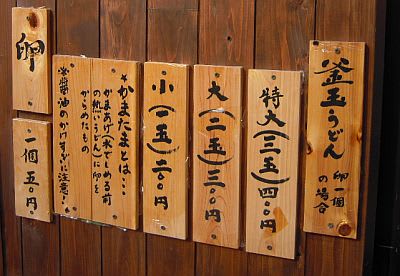 釜玉うどん
卵一個
の場合
特大(三玉)四〇〇円
大(二玉)三〇〇円
小(一玉)二〇〇円
*かまたまとは・・・
かまあげ(水でしめる前
の熱いうどん)に卵を
からめたもの
※醤油のかけすぎに注意!
卵
一個五〇円